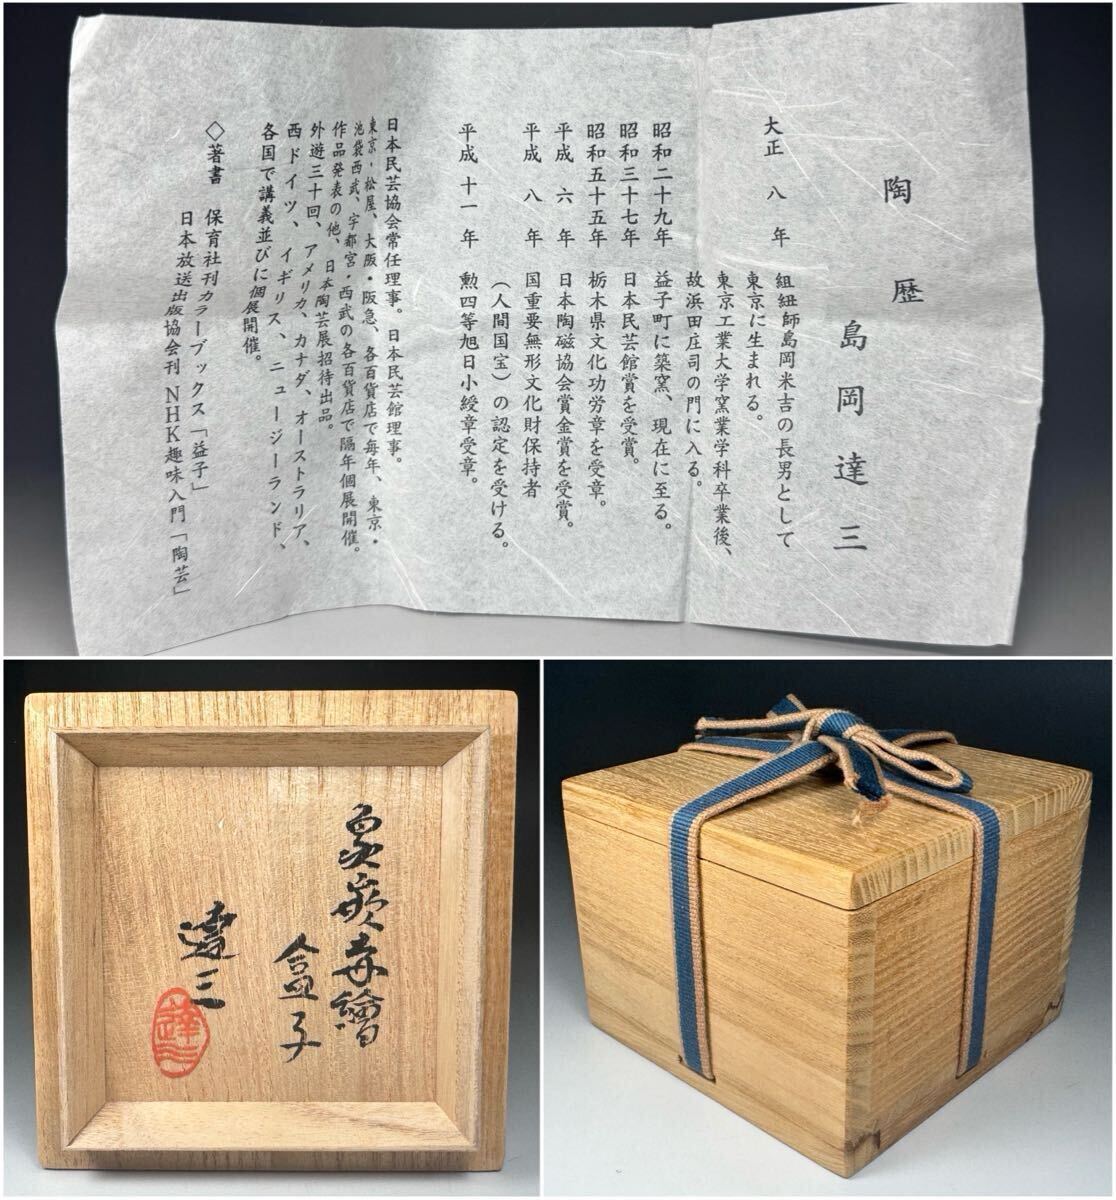 陶歴
島岡達三
大正八年 組紐師島岡米吉の長男として
東京に生まれる。
東京工業大学窯業学科卒業後、
故浜田庄司の門に入る。
昭和二十九年 益子町に築窯、現在に至る。
昭和三十七年 日本民芸館賞を受賞。
昭和五十五年 栃木県文化功労章を受章。
平成六年 日本陶磁協会賞金賞を受賞。
平成八年 国重要無形文化財保持者
(人間国宝)の認定を受ける。
平成十一年 勲四等旭日小綬章受章。
日本民芸協会常任理事。日本民芸館理事。
東京・松屋、大阪・阪急、各百貨店で毎年、東京・
池袋西武、宇都宮・西武の各百貨店で隔年個展開催。
作品発表の他、日本陶芸展招待出品。
外遊三十回、アメリカ、カナダ、オーストラリア、
西ドイツ、イギリス、ニュージーランド、
各国で講義並びに個展開催。
◇著書 保育社刊カラーブックス「益子」
日本放送出版協会刊 NHK趣味入門「陶芸」
象嵌赤繪
盒子
達三
達三